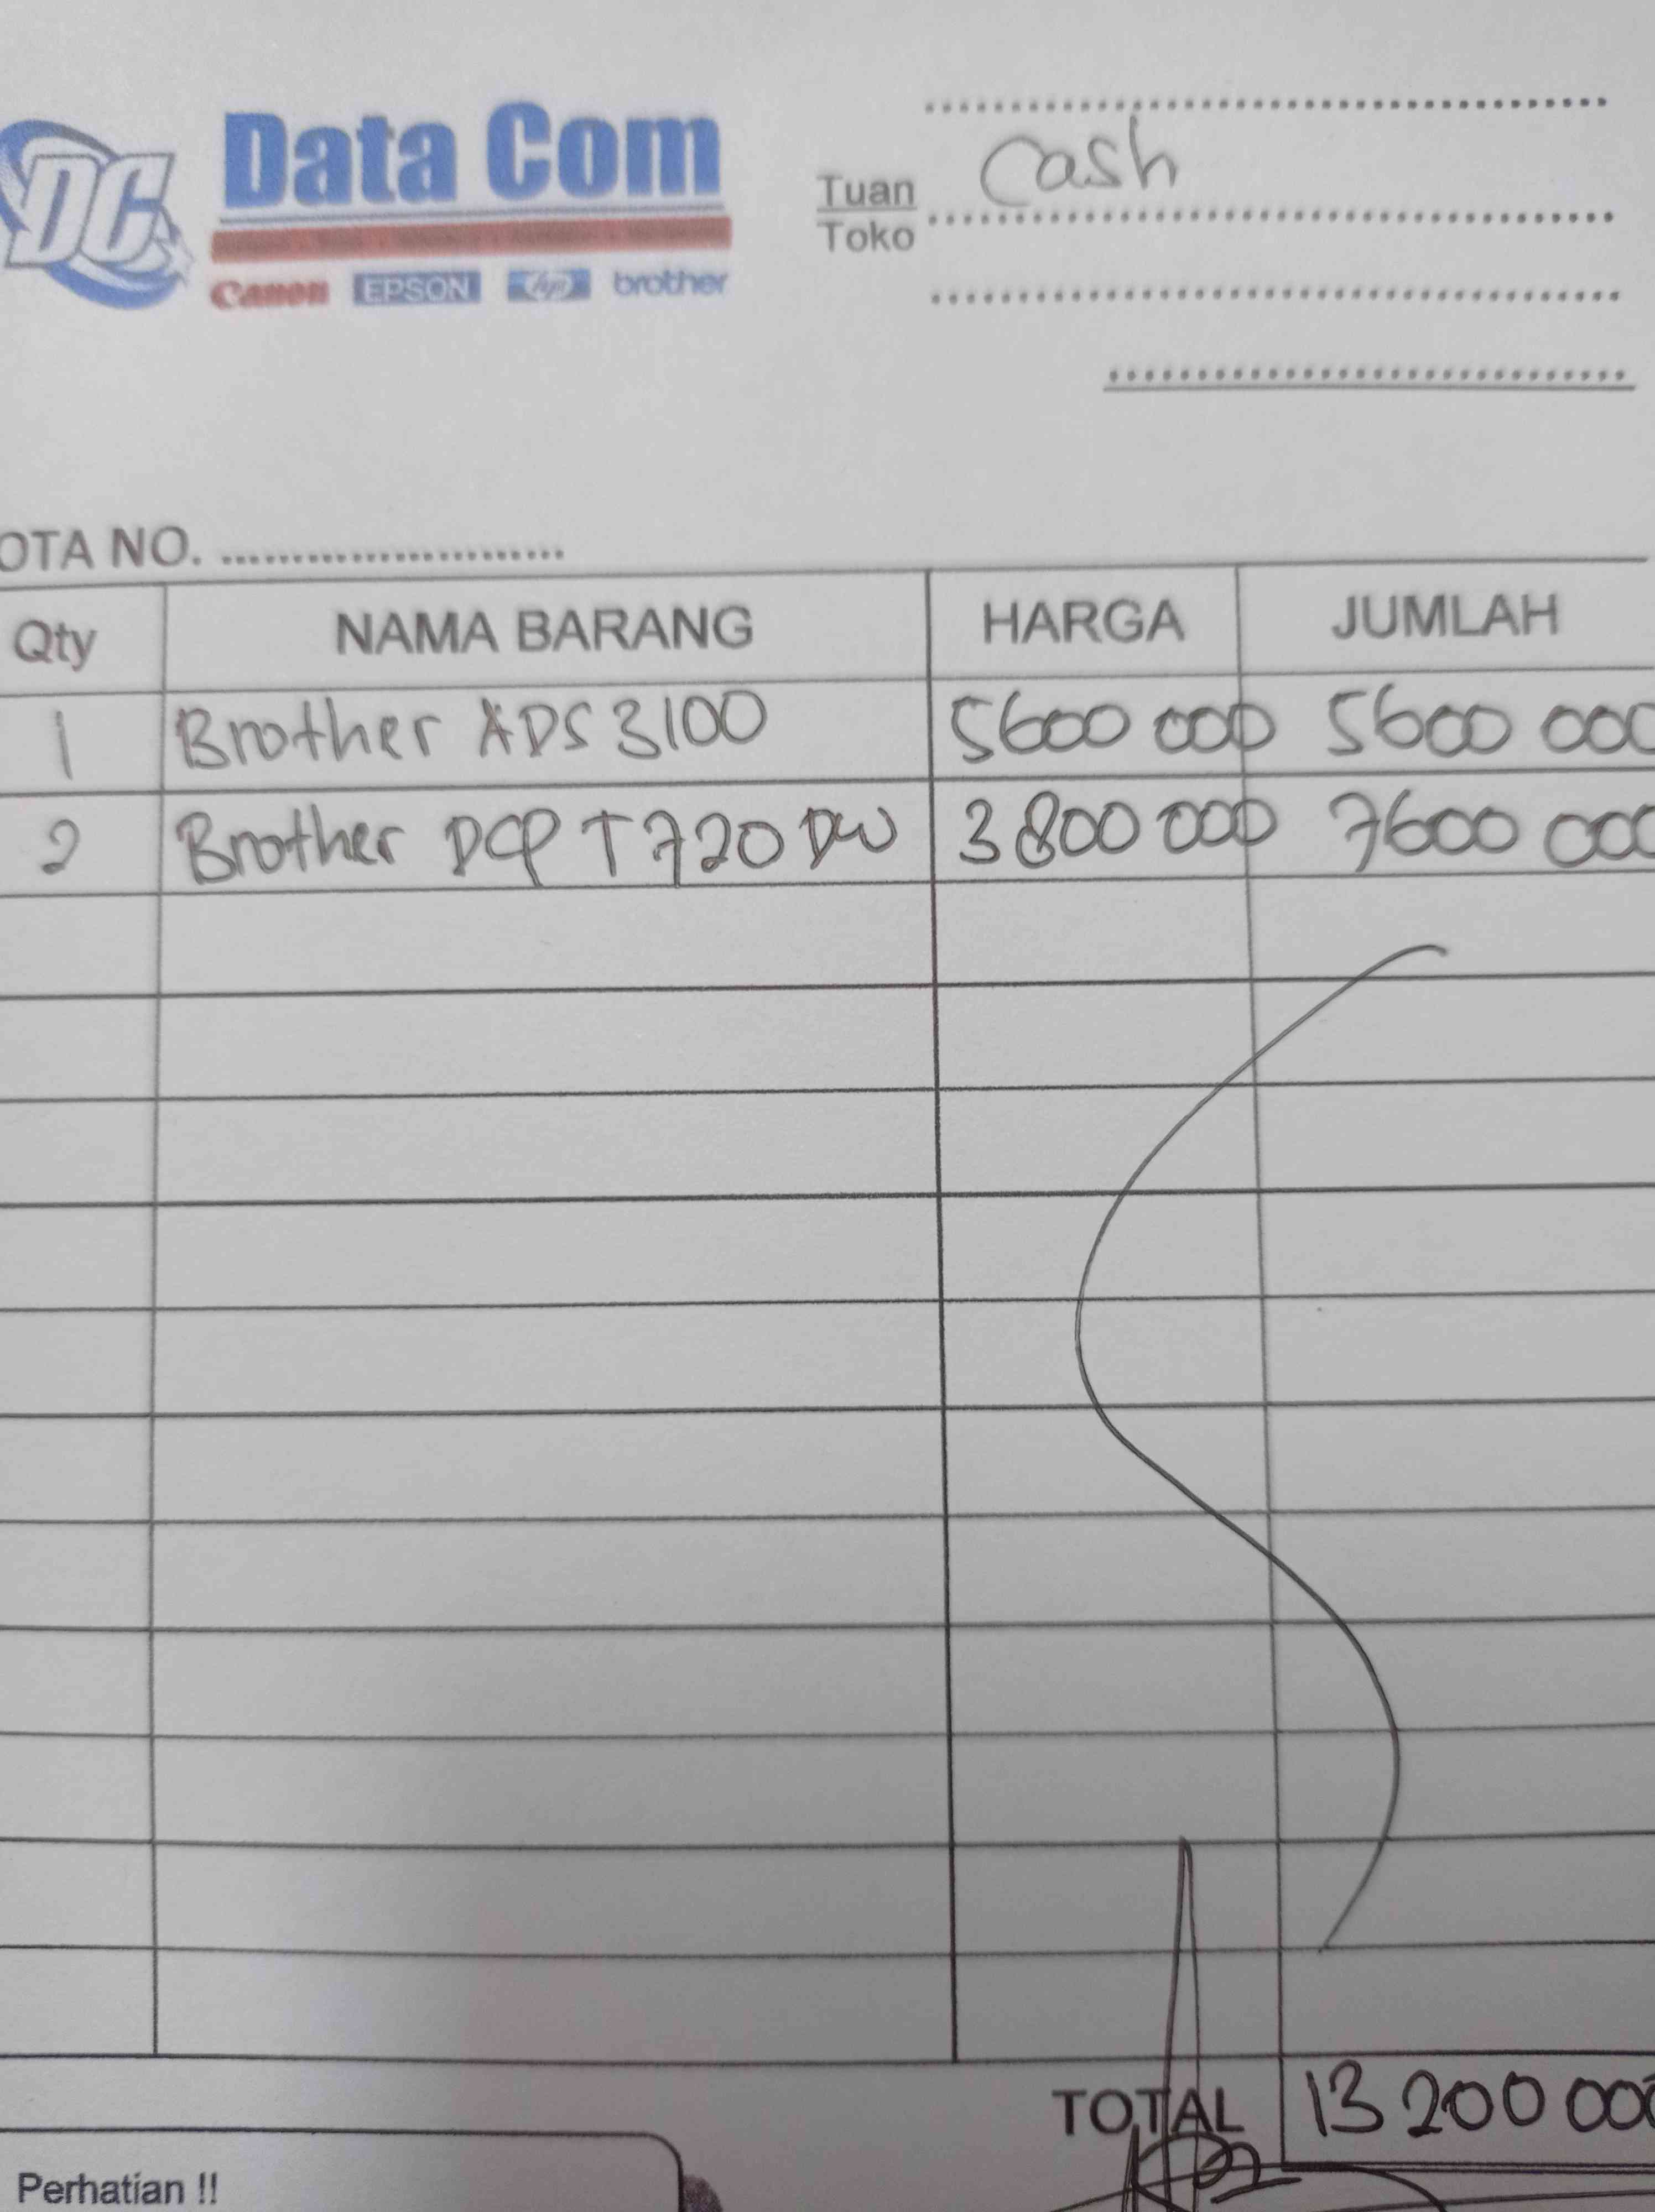 DC
Data Com
Canon EPSON hp brother
Tuan
Toko
Cash
OTA NO.
Qty NAMA BARANG HARGA JUMLAH
1 Brother ADS 3100 5600 000 5600 000
2 Brother DCP T720 DW 3800 000 7600 000
TOTAL 13 200 000
Perhatian !!